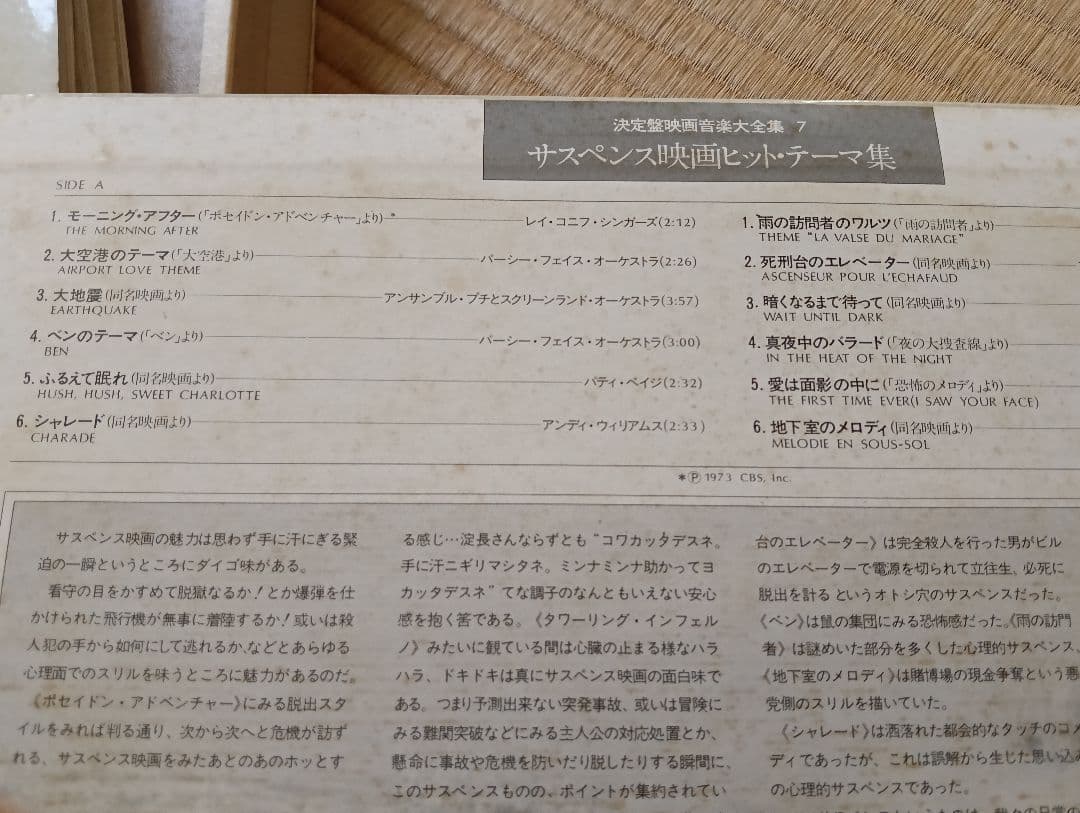 決定盤映画音楽大全集 7
サスペンス映画ヒット・テーマ集
SIDE A
1. モーニング・アフター(「ポセイドン・アドベンチャー」より)* レイ・コニフ・シンガーズ(2:12)
THE MORNING AFTER
2. 大空港のテーマ(「大空港」より) パーシー・フェイス・オーケストラ(2:26)
AIRPORT LOVE THEME
3. 大地震(同名映画より) アンサンブル・プチとスクリーンランド・オーケストラ(3:57)
EARTHQUAKE
4. ベンのテーマ(「ベン」より) パーシー・フェイス・オーケストラ(3:00)
BEN
5. ふるえて眠れ(同名映画より) パティ・ペイジ(2:32)
HUSH, HUSH, SWEET CHARLOTTE
6. シャレード(同名映画より) アンディ・ウィリアムス(2:33)
CHARADE
1. 雨の訪問者のワルツ(「雨の訪問者」より)
THEME "LA VALSE DU MARIAGE"
2. 死刑台のエレベーター(同名映画より)
ASCENSEUR POUR L'ECHAFAUD
3. 暗くなるまで待って(同名映画より)
WAIT UNTIL DARK
4. 真夜中のバラード(「夜の大捜査線」より)
IN THE HEAT OF THE NIGHT
5. 愛は面影の中に(「恐怖のメロディ」より)
THE FIRST TIME EVER(I SAW YOUR FACE)
6. 地下室のメロディ(同名映画より)
MELODIE EN SOUS-SOL
*Ⓟ 1973 CBS, Inc.
サスペンス映画の魅力は思わず手に汗にぎる緊
迫の一瞬というところにダイゴ味がある。
看守の目をかすめて脱獄なるか!とか爆弾を仕
かけられた飛行機が無事に着陸するか!或いは殺
人犯の手から如何にして逃れるか、などとあらゆる
心理面でのスリルを味うところに魅力があるのだ。
《ポセイドン・アドベンチャー》にみる脱出スタ
イルをみれば判る通り、次から次へと危機が訪ず
れる、サスペンス映画をみたあとのあのホッとす
る感じ…淀長さんならずとも“コワカッタデスネ。
手に汗ニギリマシタネ。ミンナミンナ助かってヨ
カッタデスネ”てな調子のなんともいえない安心
感を抱く筈である。《タワーリング・インフェル
ノ》みたいに観ている間は心臓の止まる様なハラ
ハラ、ドキドキは真にサスペンス映画の面白味で
ある。つまり予測出来ない突発事故、或いは冒険に
みる難関突破などにみる主人公の対応処置とか、
懸命に事故や危機を防いだり脱したりする瞬間に、
このサスペンスものの、ポイントが集約されてい
台のエレベーター》は完全殺人を行った男がビル
のエレベーターで電源を切られて立往生、必死に
脱出を計るというオトシ穴のサスペンスだった。
《ベン》は鼠の集団にみる恐怖感だった。《雨の訪問
者》は謎めいた部分を多くした心理的サスペンス、
《地下室のメロディ》は賭博場の現金争奪という悪
党側のスリルを描いていた。
《シャレード》は洒落れた都会的なタッチのコメ
ディであったが、これは誤解から生じた思い込み
の心理的サスペンスであった。